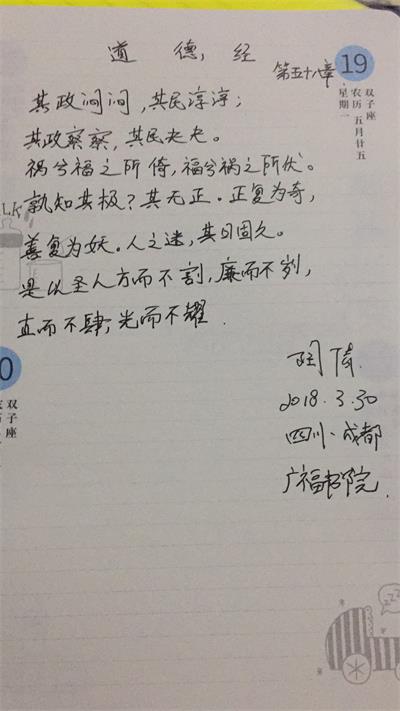 道德经
第五十八章
19
双子座
农历五月廿五
星期一
其政闷闷，其民淳淳；
其政察察，其民夬夬。
祸兮福之所倚，福兮祸之所伏。
孰知其极？其无正。正复为奇，
善复为妖。人之迷，其日固久。
是以圣人方而不割，廉而不刿，
直而不肆，光而不耀．
2018.3.30
四川·成都
广福书院
LK
0
双子座
zzz